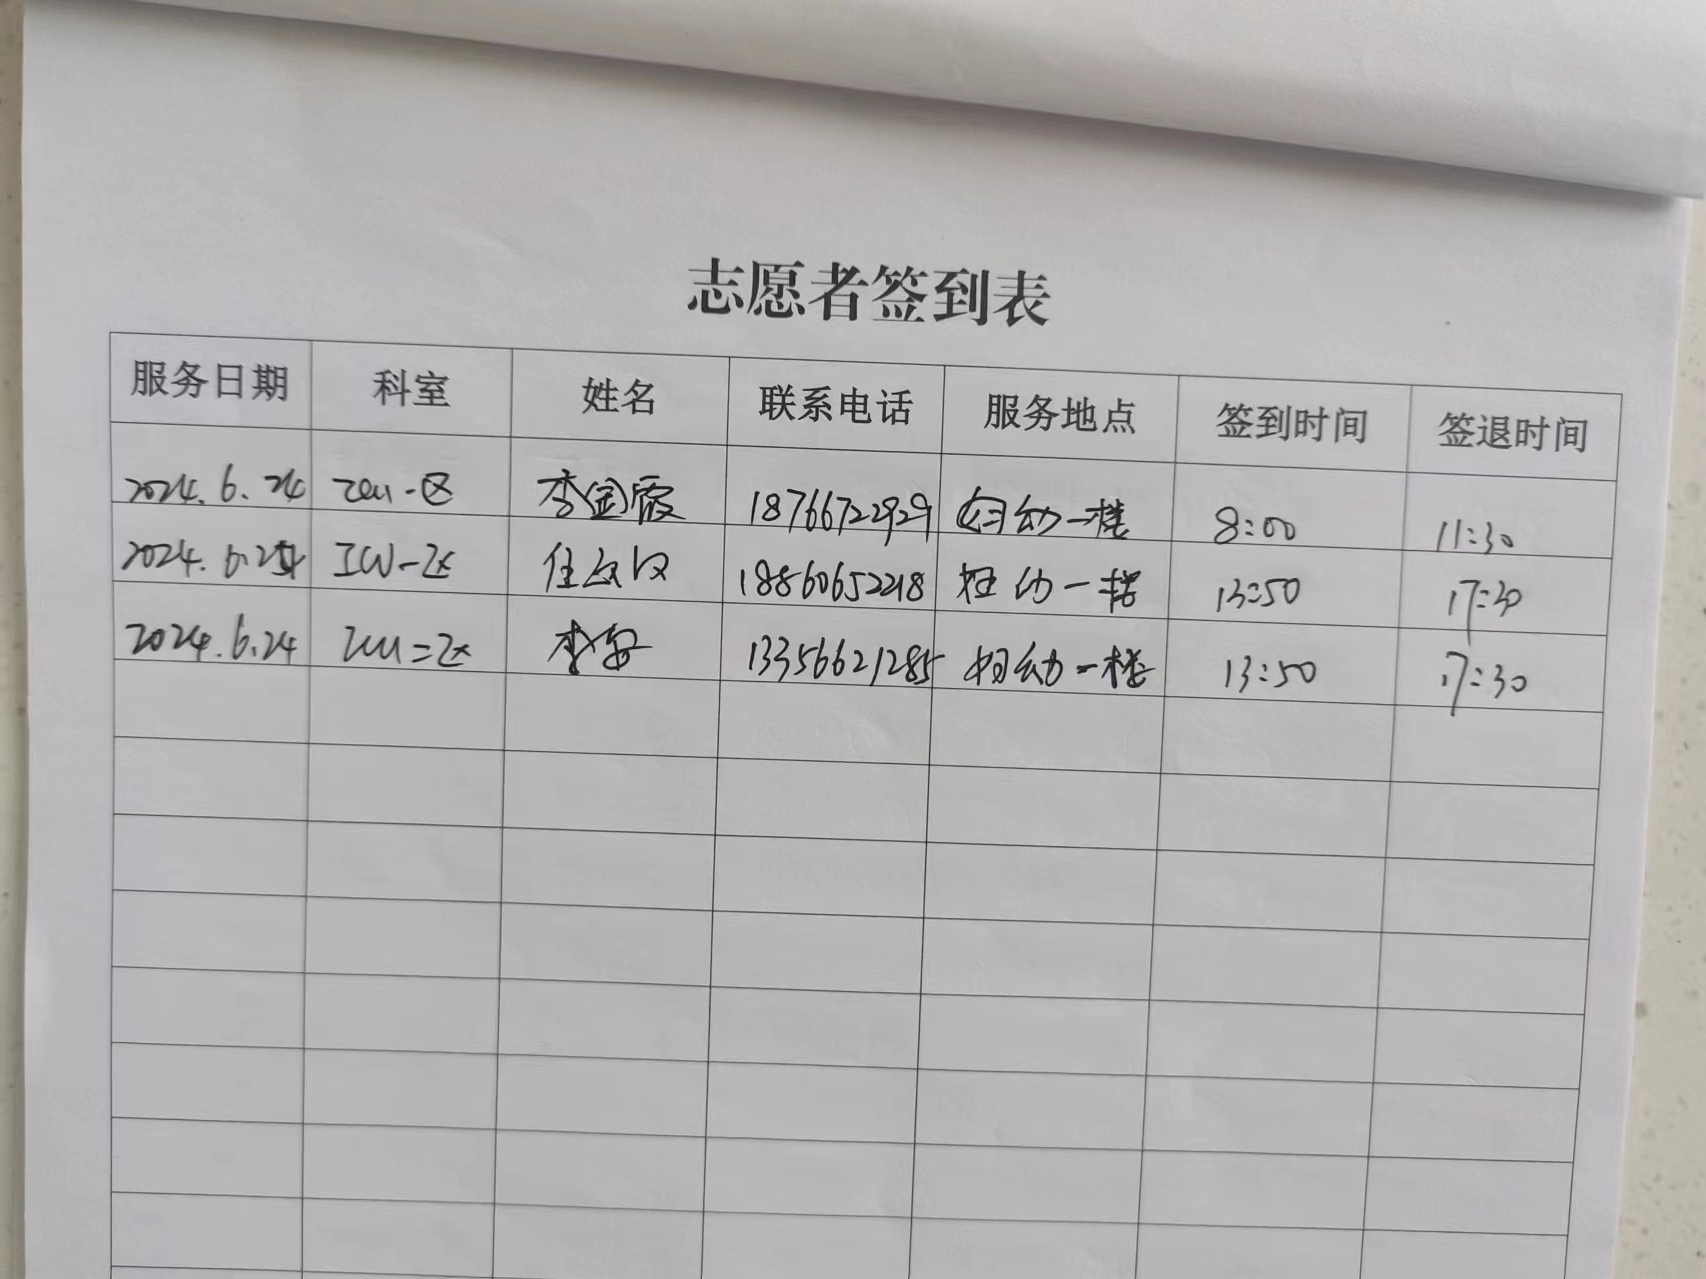 志愿者签到表
服务日期 科室 姓名 联系电话 服务地点 签到时间 签退时间
2024.6.24 ICU一区 李金霞 18766722929 妇幼一楼 8:00 11:30
2024.6.24 ICU一区 18860652218 妇幼一楼 13:50 17:30
2024.6.24 ICU二区 李安 13356621285 妇幼一楼 13:50 17:30